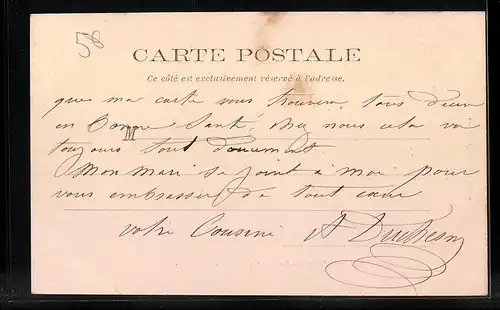 58
CARTE POSTALE
Ce côté est exclusivement réservé à l'adresse.
que ma carte vous trouvera tous deux
en Bonne Santé, chez nous cela va
M
toujours tout doucement
Mon mari se joint à moi pour
vous embrasser de tout cœur
votre Cousine A Duchesn